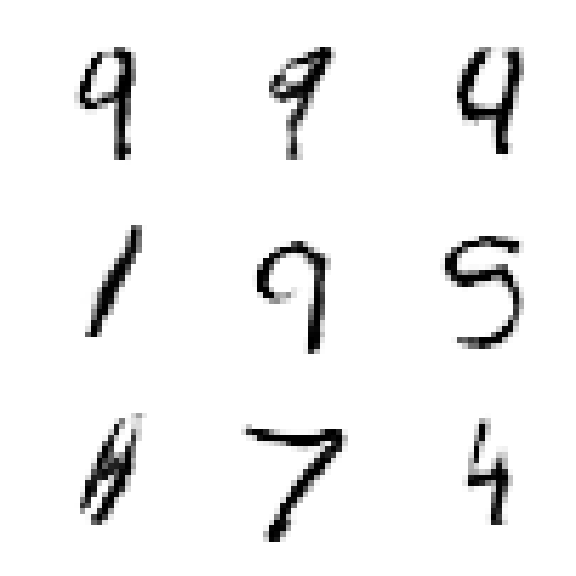 9 9 4
1 9 5
7 4